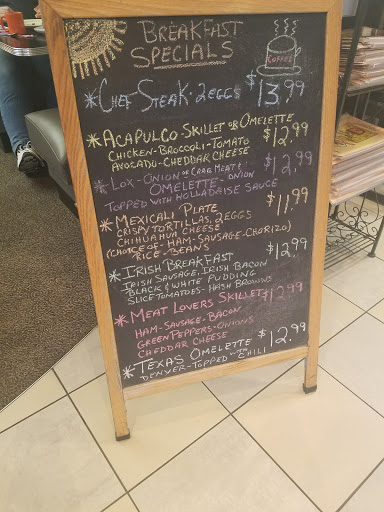 BREAKFAST
SPECIALS
COFFEE
*CHEF STEAK·2EGGS $13.99
*ACAPULCO-SKILLET OR OMELETTE
CHICKEN-BROCCOLI-TOMATO $12.99
AVOCADO-CHEDDAR CHEESE
*LOX-ONION OR CRAB MEAT & $12.99
OMELETTE-ONION
TOPPED WITH HOLLADAISE SAUCE
*MEXICALI PLATE $11.99
CRISPY TORTILLAS, 2EGGS
CHIHUAHUA CHEESE
(CHOICE OF-HAM-SAUSAGE-CHORIZO)
RICE-BEANS
*IRISH BREAKFAST $12.99
IRISH SAUSAGE, IRISH BACON
BLACK & WHITE PUDDING
SLICE TOMATOES-HASH BROWNS
*MEAT LOVERS SKILLET $12.99
HAM-SAUSAGE-BACON
GREEN PEPPERS-ONIONS
CHEDDAR CHEESE
*TEXAS OMELETTE $12.99
DENVER-TOPPED W/CHILI